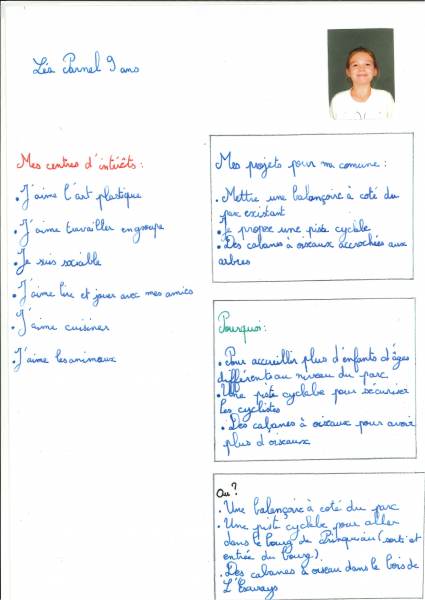 Léa Parnel 9 ans
Mes centres d'intérêts :
• J'aime l'art plastique
• J'aime travailler en groupe
• Je suis sociable
• J'aime lire et jouer avec mes amies
• J'aime cuisiner
• J'aime les animaux
Mes projets pour ma comune :
• Mettre une balançoire à coté du
parc existant
• Je propose une piste cyclable
• Des cabanes à oiseaux accrochées aux
arbres
Pourquoi :
• Pour accueillir plus d'enfants d'âges
différents au niveau du parc
• Une piste cyclable pour sécuriser
les cyclistes
• Des cabanes à oiseaux pour avoir
plus d'oiseaux
Ou ?
• Une balançoire à coté du parc
• Une piste cyclable pour aller
dans le bourg de Prinquiau (sorti et
entrée du bourg)
• Des cabanes à oiseau dans le bois de